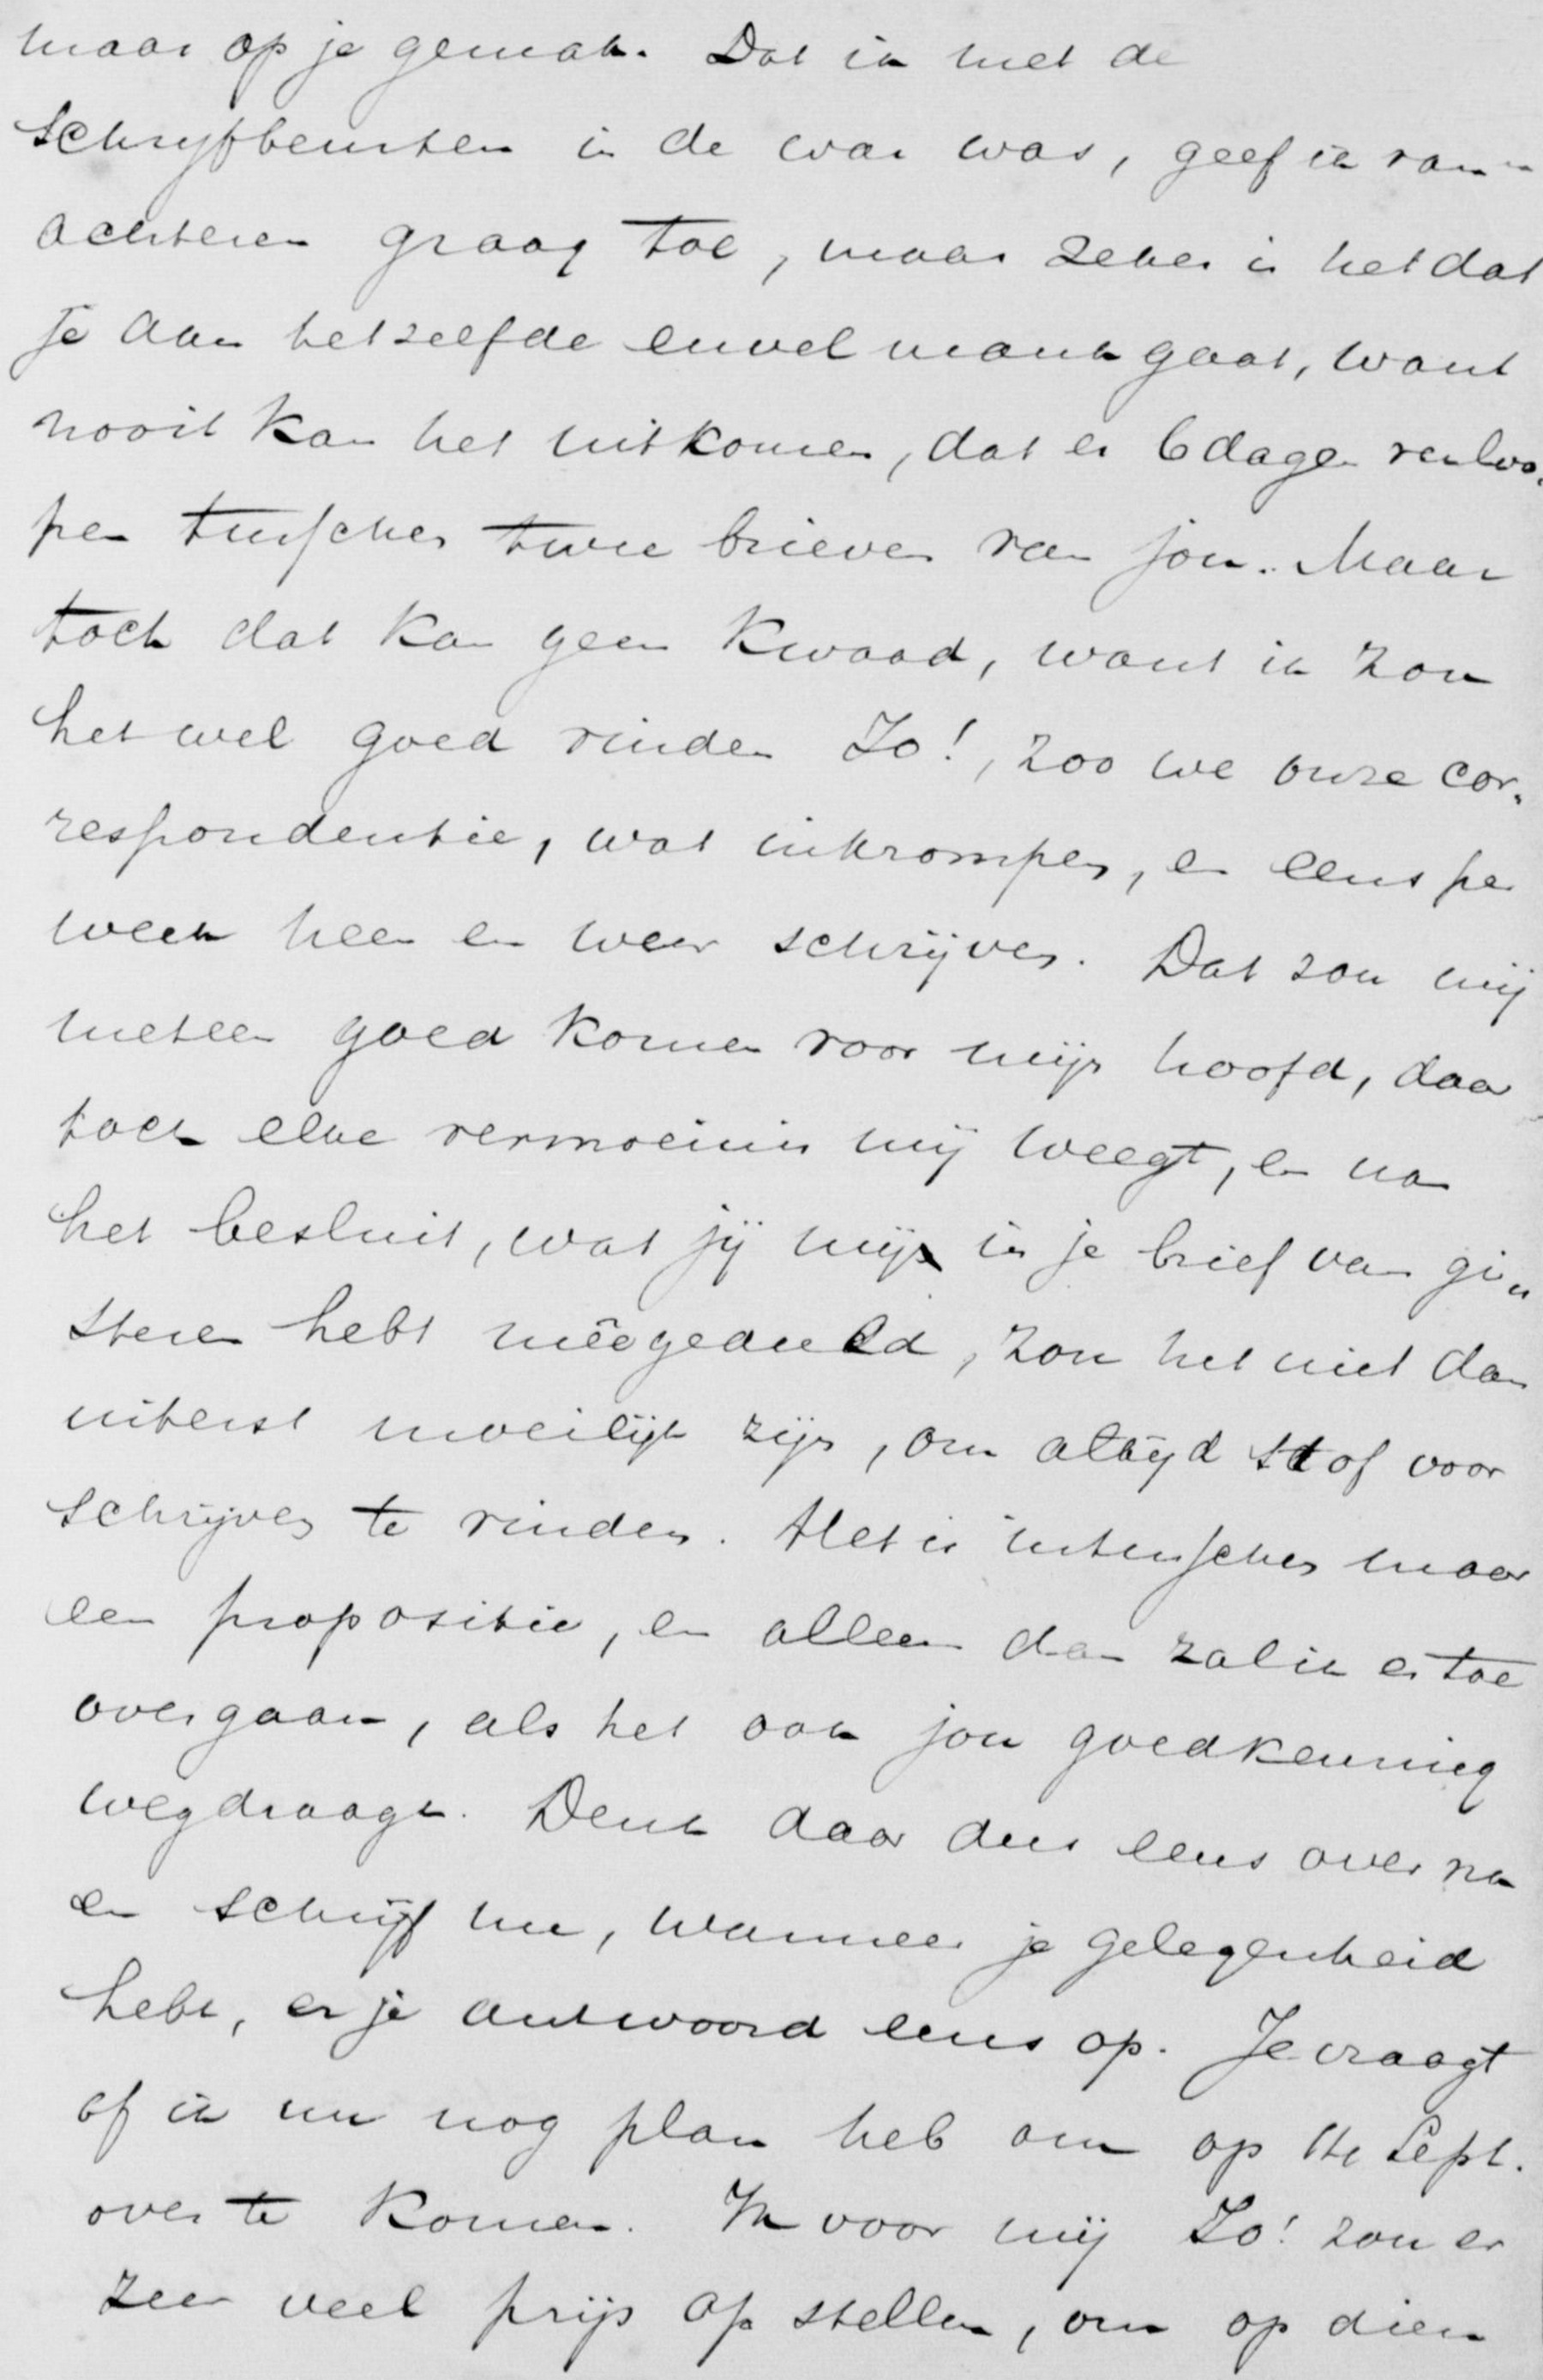 maar op je gemak. Dat ik met de
schryfbeurten in de war was, geef ik van
achteren graag toe, maar zeker is het dat
je aan hetzelfde euvel mank gaat, want
nooit kan het uitkomen, dat er 6 dagen verloo-
pen tusschen twee brieven van jou. Maar
toch dat kan geen kwaad, want ik zou
het wel goed vinden Jo!, zoo we onze cor-
respondentie, wat inkrompen, en eens per
week heen en weer schrijven. Dat zou mij
meteen goed komen voor mijn hoofd, daar
toch elke vermoeinis mij weegt, en na
het besluit, wat jij mij in je brief van gi-
steren hebt meêgedeeld, zou het niet dan
uiterst moeilijk zijn, om altijd stof voor
schrijven te vinden. Het is intusschen maar
een propositie, en alleen dan zal ik er toe
overgaan, als het ook jou goedkeuring
wegdraagt. Denk daar dus eens over na
en schrijf me, wanneer je gelegenheid
hebt, er je antwoord eens op. Je vraagt
of ik nu nog plan heb om op Sept.
over te komen. Ik voor mij Jo! zou er
zeer veel prijs op stellen, om op dien